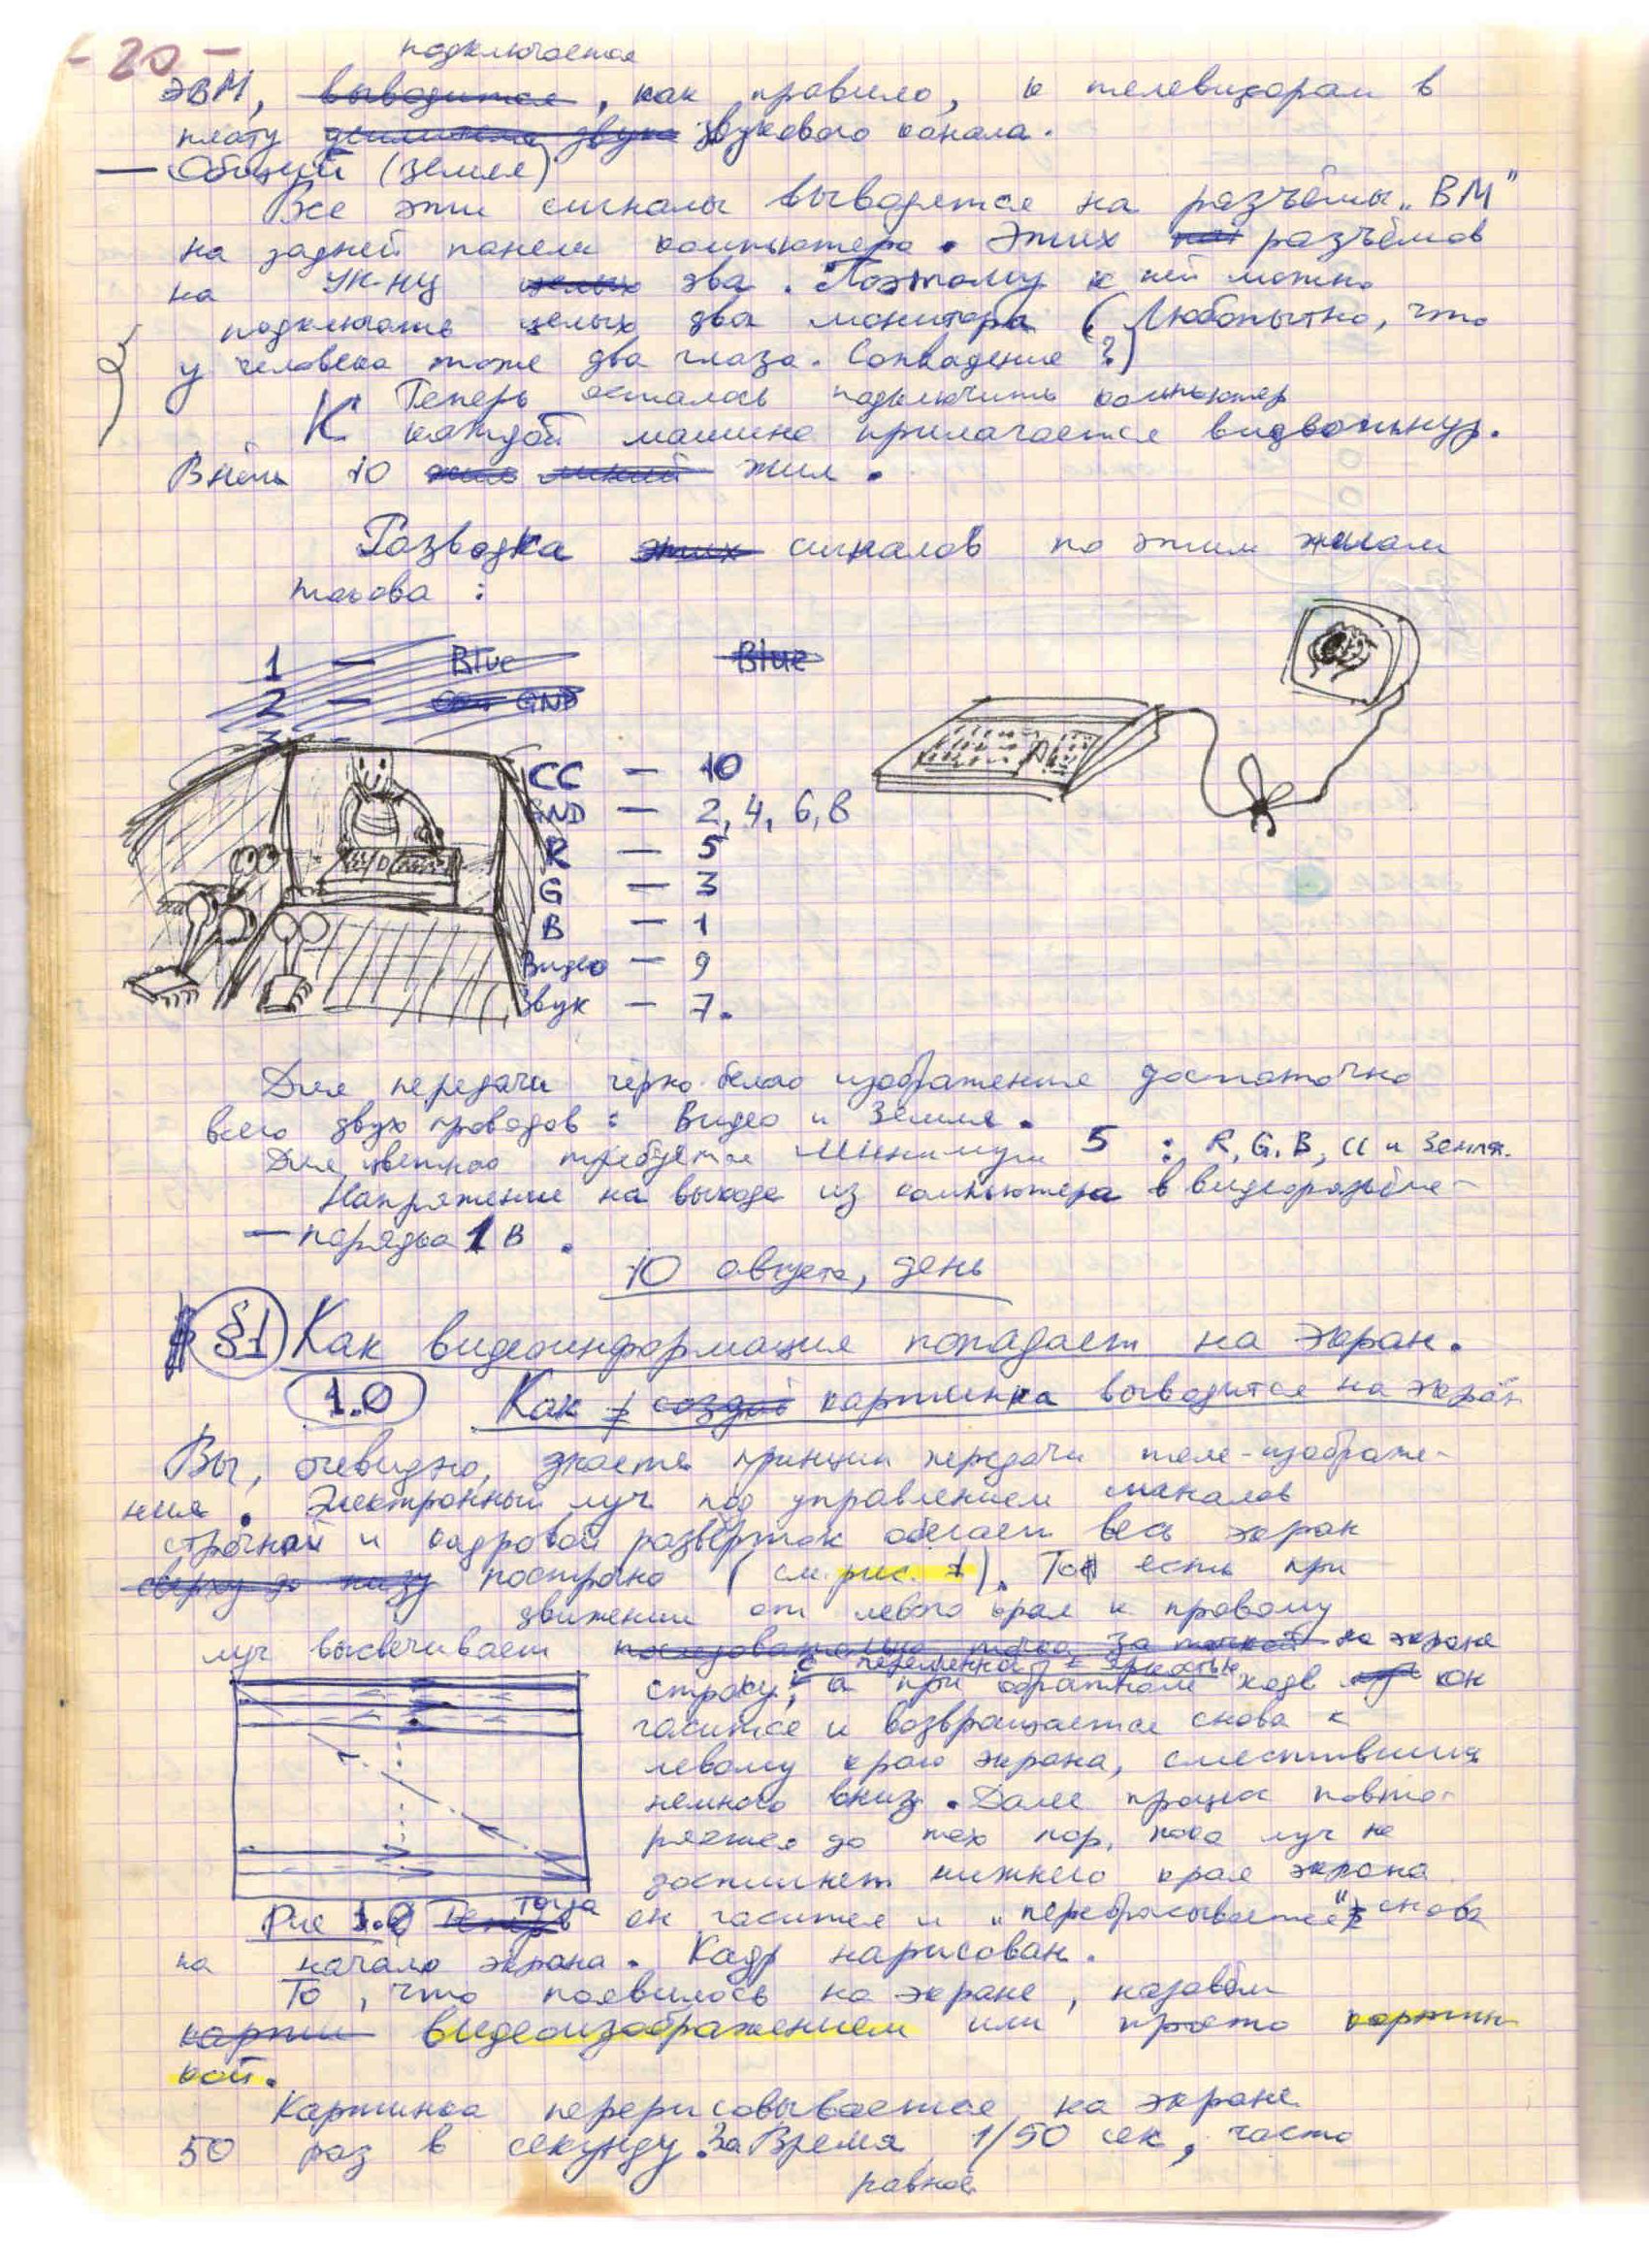 - 20 -
подключается
ЭВМ, выводится, как правило, к телевизорам в
плату усилителя звука звукового канала.
— Общий (земля)
Все эти сигналы выводятся на разъёмы „ВМ"
на задней панели компьютера. Этих разъёмов
на УК-НЦ целых два. Поэтому к ней можно
подключать целых два монитора (Любопытно, что
у человека тоже два глаза. Совпадение?)
Теперь осталось подключить компьютер
К каждой машине прилагается видеошнур.
В нём 10 жил линий жил.
Разводка этих сигналов по этим жилам
такова:
1 — Blue Blue
2 — GND
3 —
CC — 10
GND — 2, 4, 6, 8
R — 5
G — 3
B — 1
Видео — 9
Звук — 7.
Для передачи чёрно-белого изображения достаточно
всего двух проводов: Видео и Земля.
Для цветного требуется минимум 5: R, G, B, CC и Земля.
Напряжение на выходе из компьютера в видеоразъёме
— порядка 1 В.
10 августа, день
§1 Как видеоинформация попадает на экран.
1.0 Как создаё картинка выводится на экран
Вы, очевидно, знаете принцип передачи теле-изображе-
ния. Электронный луч под управлением сигналов
строчной и кадровой развёрток обегает весь экран
сверху до низу построчно (см. рис. 1). То есть при
движении от левого края к правому
луч высвечивает последовательно точка за точкой на экране
с переменной яркостью
строку, а при обратном ходе луч он
гасится и возвращается снова к
левому краю экрана, сместившись
немного вниз. Далее процесс повто-
ряется до тех пор, пока луч не
достигнет нижнего края экрана
Рис 1.0 Теперь Тогда он гасится и „перебрасывается" снова
на начало экрана. Кадр нарисован.
То, что появилось на экране, назовём
картин видеоизображением или просто картин
кой.
Картинка перерисовывается на экране
50 раз в секунду. За Время, 1/50 сек, часто
равное